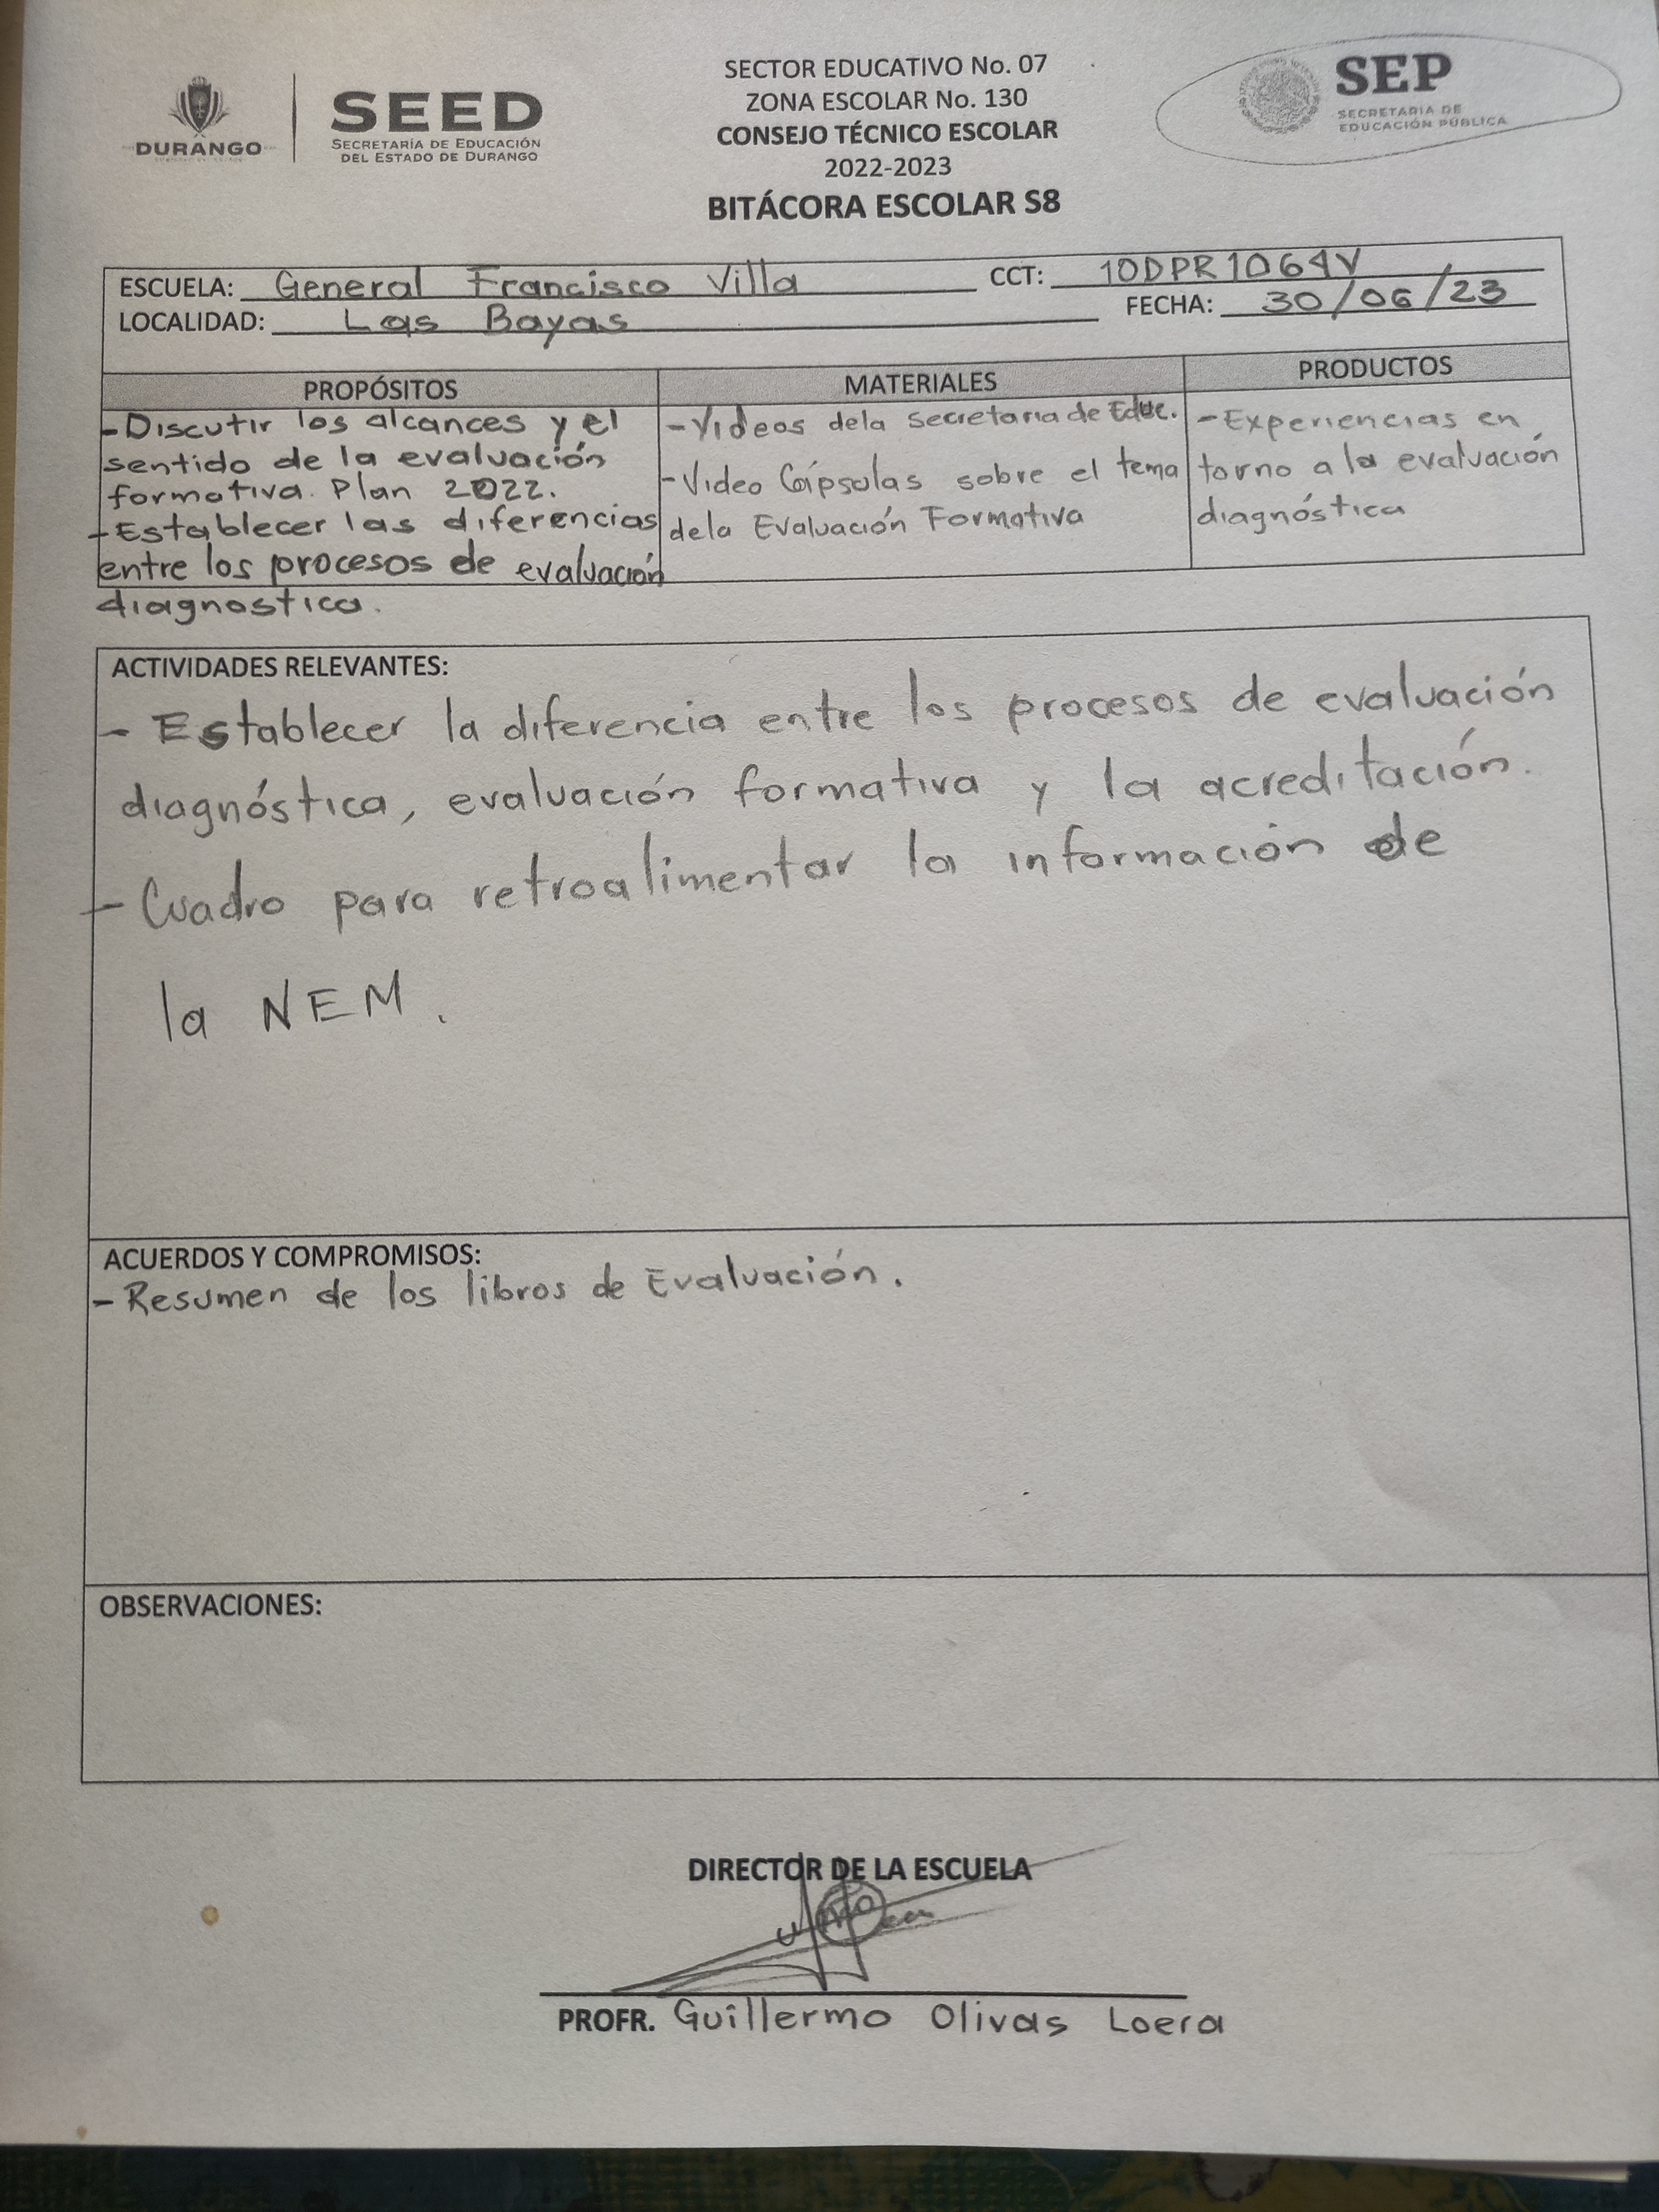 DURANGO
SEED
SECRETARÍA DE EDUCACIÓN
DEL ESTADO DE DURANGO
SECTOR EDUCATIVO No. 07
ZONA ESCOLAR No. 130
CONSEJO TÉCNICO ESCOLAR
2022-2023
BITÁCORA ESCOLAR S8
SEP
SECRETARÍA DE
EDUCACIÓN PÚBLICA
ESCUELA: General Francisco Villa CCT: 10DPR1064V
LOCALIDAD: Las Bayas FECHA: 30/06/23
PROPÓSITOS
- Discutir los alcances y el
sentido de la evaluación
formativa. Plan 2022.
- Establecer las diferencias
entre los procesos de evaluación
diagnostica.
MATERIALES
- Videos dela secretaria de Educ.
- Video Cápsulas sobre el tema
dela Evaluación Formativa
PRODUCTOS
- Experiencias en
torno a la evaluación
diagnóstica
ACTIVIDADES RELEVANTES:
- Establecer la diferencia entre los procesos de evaluación
diagnóstica, evaluación formativa y la acreditación.
- Cuadro para retroalimentar la información de
la NEM.
ACUERDOS Y COMPROMISOS:
- Resumen de los libros de Evaluación.
OBSERVACIONES:
DIRECTOR DE LA ESCUELA
PROFR. Guillermo Olivas Loera